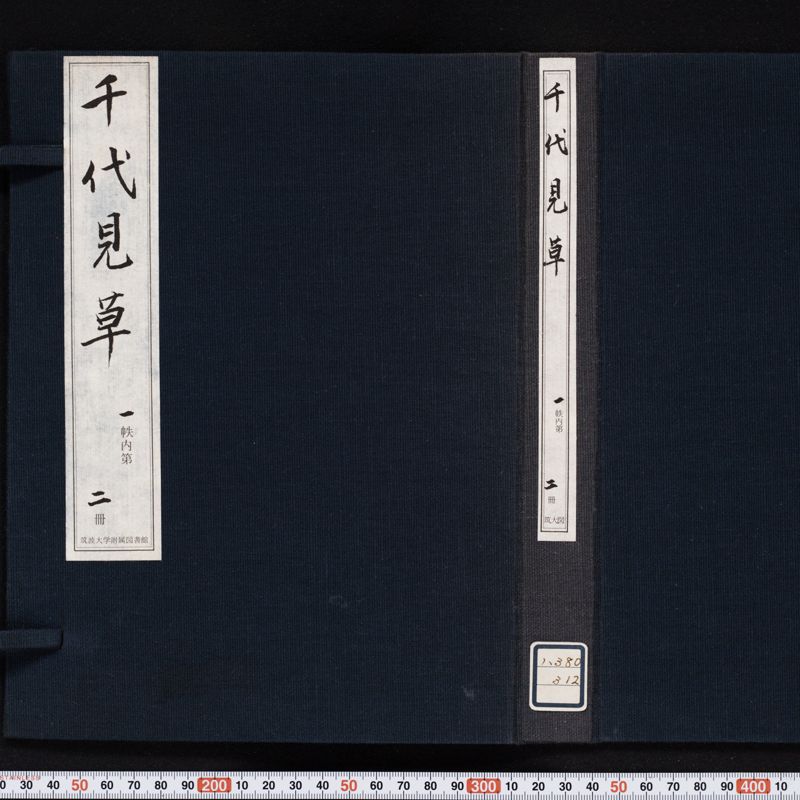 千代見草
一帙内第
二冊
筑波大学附属図書館
千代見草
一帙内第
二冊
筑大図
312
STAINLESS
30 40 50 60 70 80 90 200 10 20 30 40 50 60 70 80 90 300 10 20 30 40 50 60 70 80 90 400 10